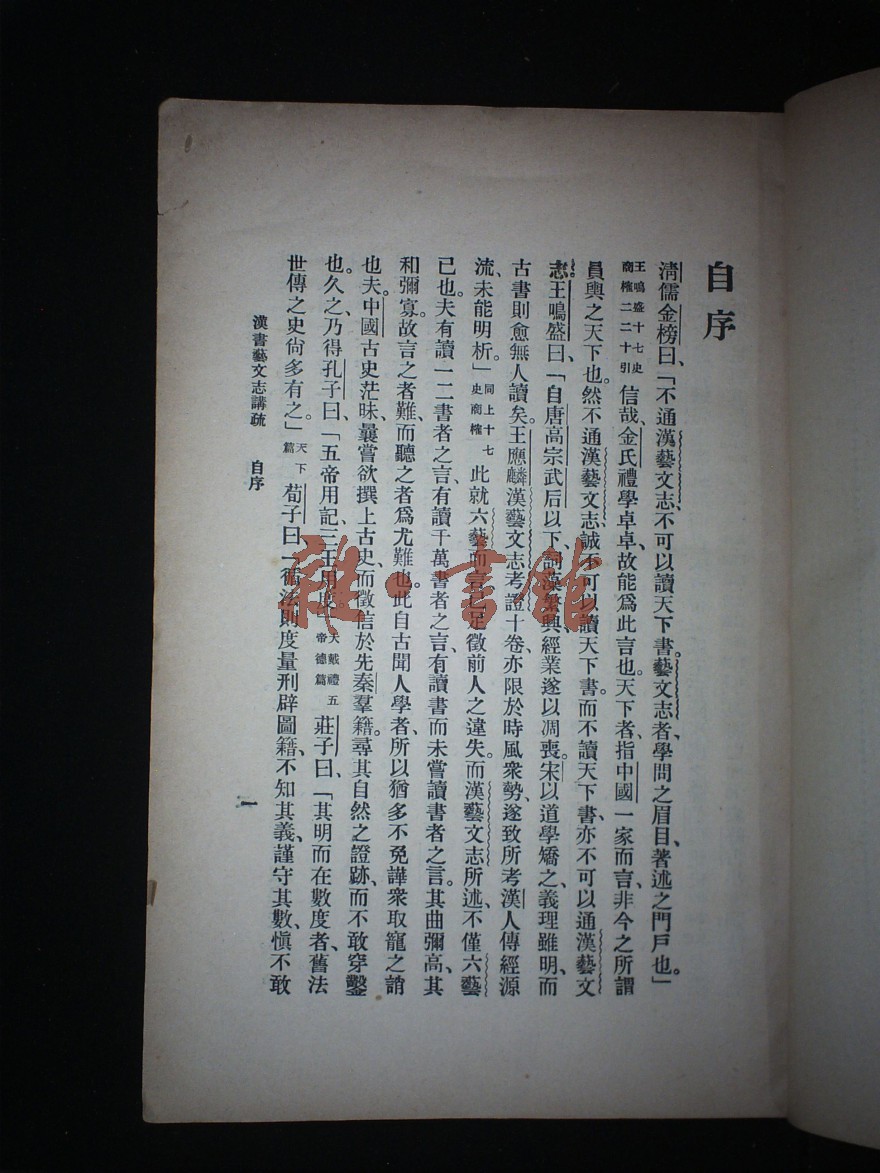 自序
清儒金榜曰、「不通漢藝文志、不可以讀天下書。藝文志者、學問之眉目、著述之門戶也。」
王鳴盛十七史商榷二二十引 信哉、金氏禮學卓卓、故能爲此言也。天下者、指中國一家而言、非今之所謂
員輿之天下也。然不通漢藝文志、誠不可以讀天下書。而不讀天下書、亦不可以通漢藝文
志。王鳴盛曰、「自唐高宗武后以下、詞藻繁興、經業遂以凋喪。宋以道學矯之、義理雖明、而
古書則愈無人讀矣。王應麟漢藝文志考證十卷、亦限於時風衆勢、遂致所考漢人傳經源
流、未能明析。」同上十七史商榷 此就六藝而言、已足徵前人之違失。而漢藝文志所述、不僅六藝
已也。夫有讀一二書者之言、有讀千萬書者之言、有讀書而未嘗讀書者之言。其曲彌高、其
和彌寡。故言之者難、而聽之者爲尤難也。此自古聞人學者、所以猶多不免譁衆取寵之誚
也。夫中國古史茫昧、曩嘗欲撰上古史、而徵信於先秦羣籍。尋其自然之證跡、而不敢穿鑿
也。久之、乃得孔子曰、「五帝用記、三王用度。」大戴禮五帝德篇 莊子曰、「其明而在數度者、舊法
世傳之史尙多有之。」天下篇 荀子曰、「循法則度量刑辟圖籍、不知其義、謹守其數、愼不敢
漢書藝文志講疏 自序 一
雜·書館